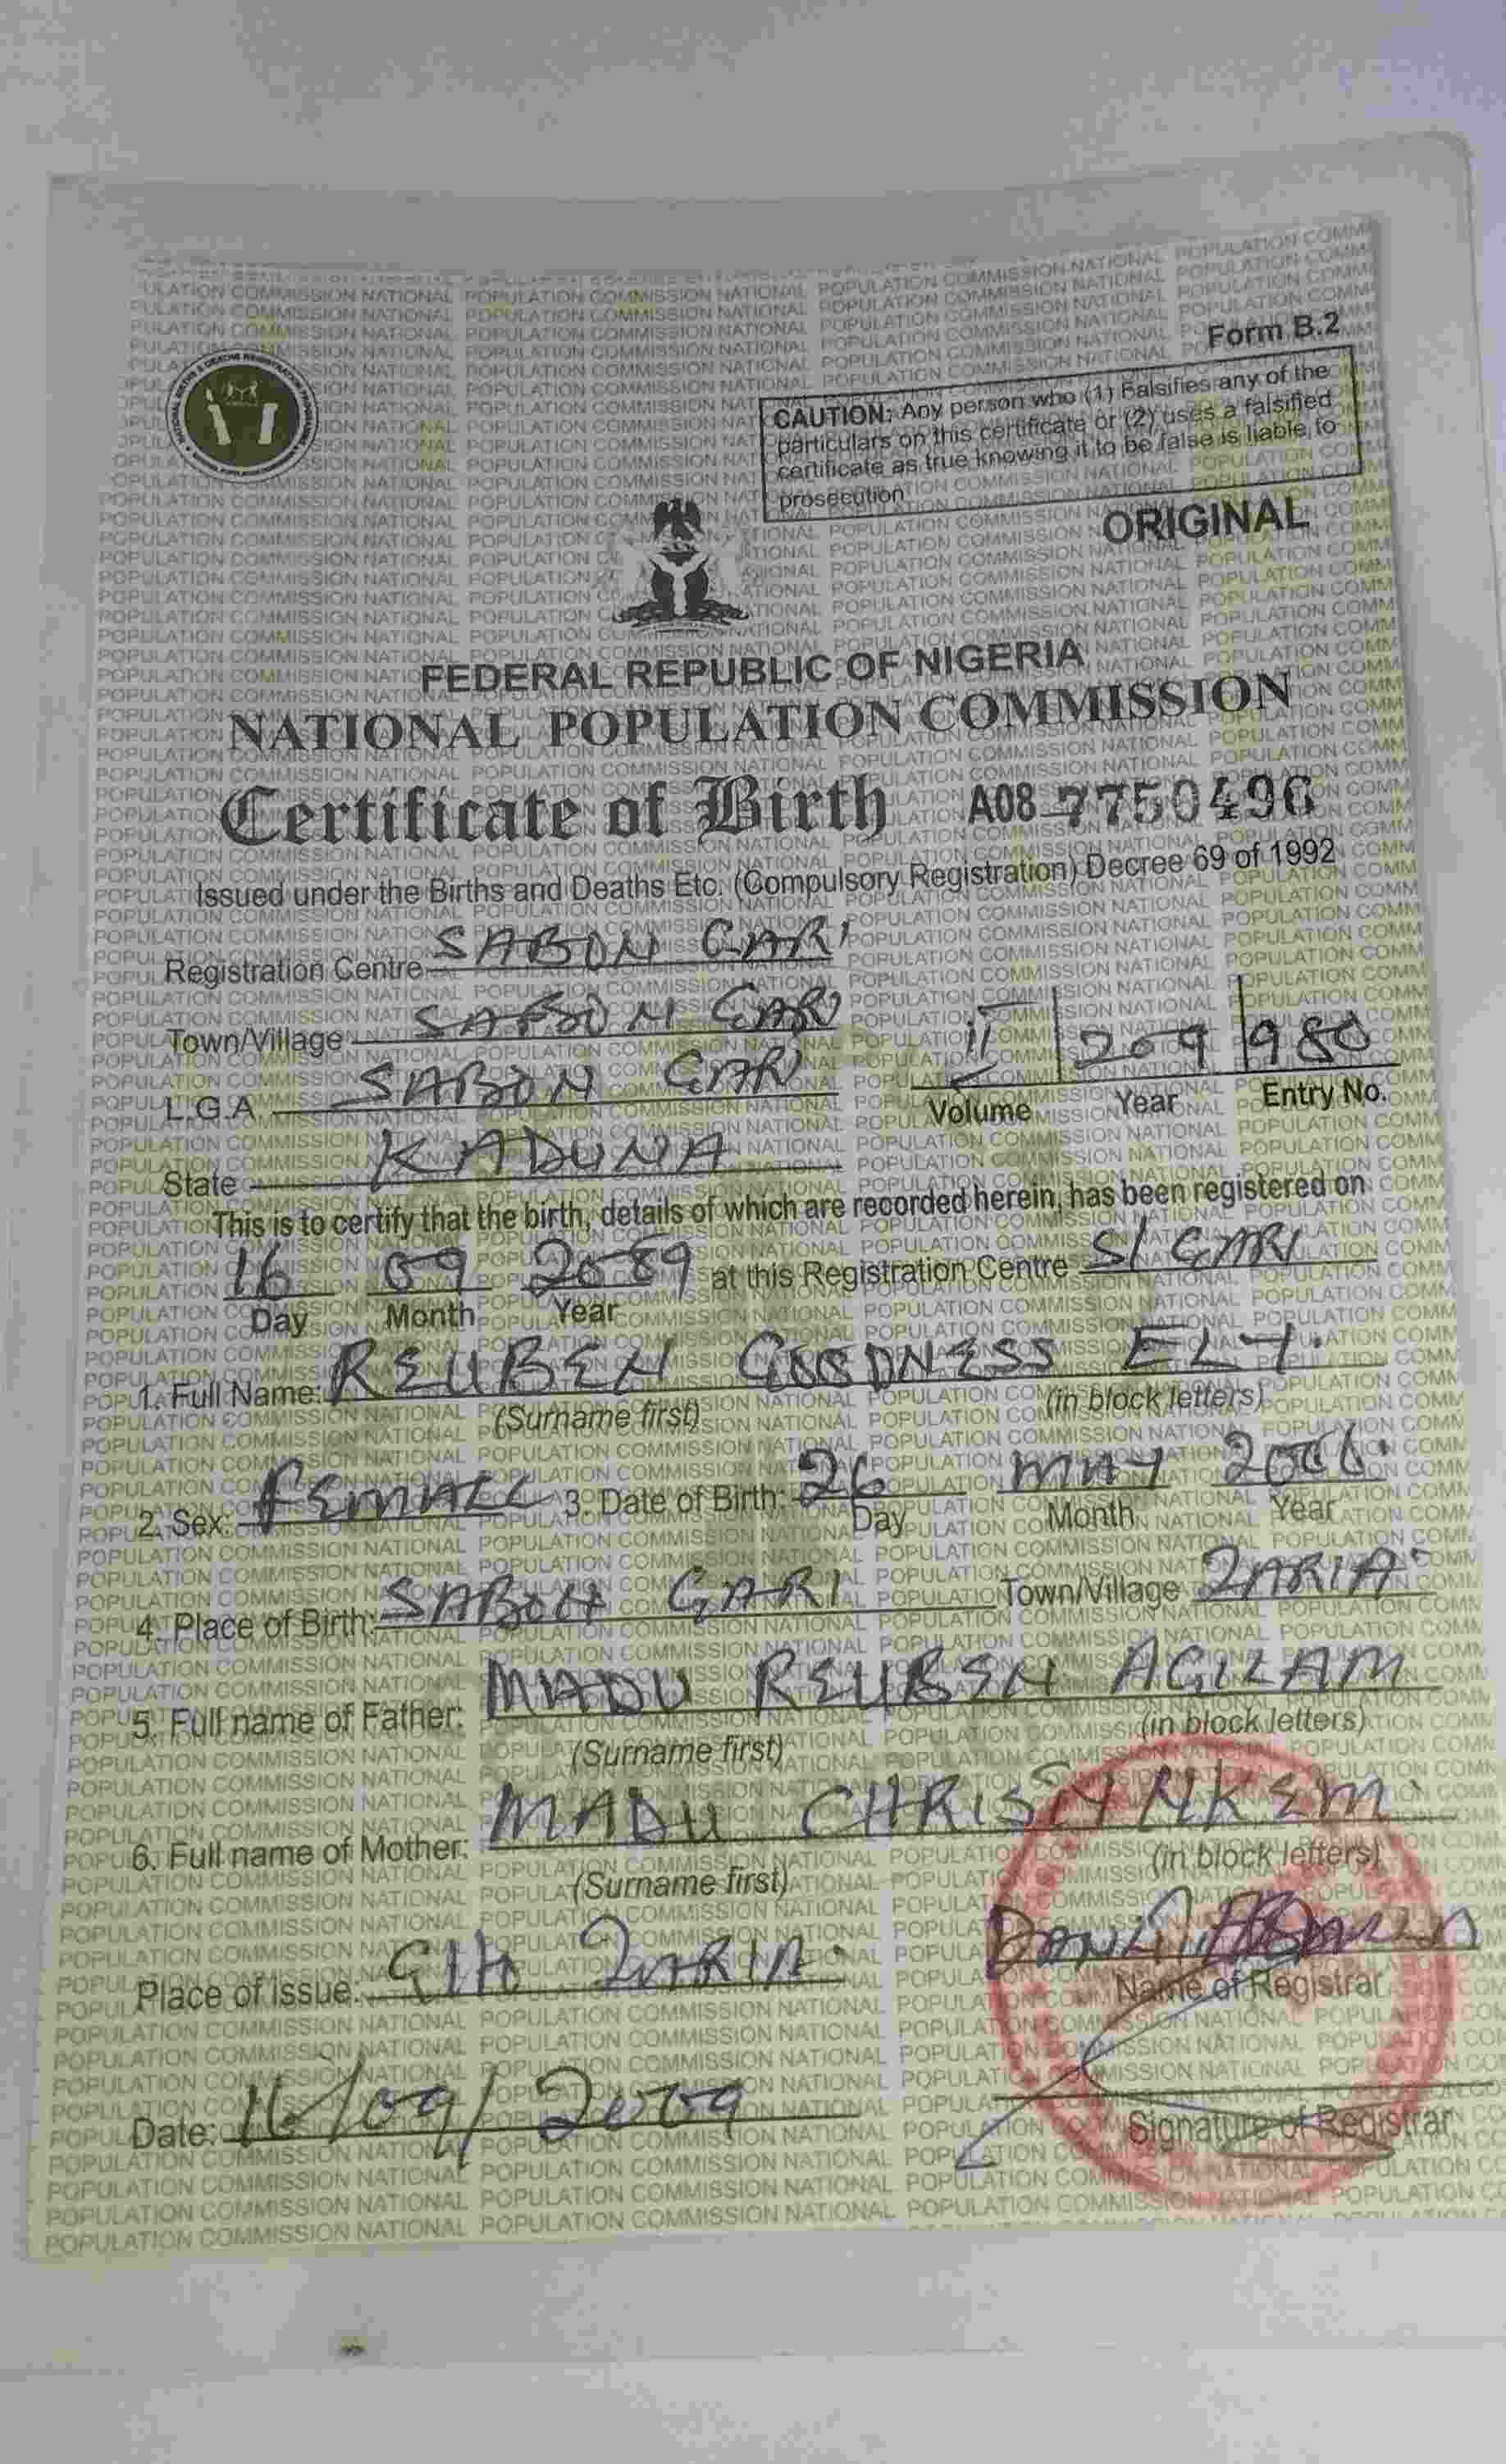 Form B.2
CAUTION: Any person who (1) Falsifies any of the
particulars on this certificate or (2) uses a falsified
certificate as true knowing it to be false is liable to
prosecution
ORIGINAL
FEDERAL REPUBLIC OF NIGERIA
NATIONAL POPULATION COMMISSION
Certificate of Birth A08 7750496
Issued under the Births and Deaths Etc. (Compulsory Registration) Decree 69 of 1992
Registration Centre SABON GARI
Town/Village SABON GARI
L.G.A SABON GARI
II 209 980
Volume Year Entry No.
State KADUNA
This is to certify that the birth, details of which are recorded herein, has been registered on
16 09 at this Registration Centre S/GARI
Day Month Year
1. Full Name: REUBEN GOODNESS ELY.
(Surname first) (in block letters)
2. Sex: FEMALE 3. Date of Birth: 26 MAY 2006.
Day Month Year
4. Place of Birth: SABON GARI Town/Village ZARIA.
5. Full name of Father: MADU REUBEN AGILAM
(Surname first) (in block letters)
6. Full name of Mother: MADU CHRISTY NKEM.
(Surname first) (in block letters)
Place of issue: ZARIA.
Name of Registrar
Date: 16/09/2009
Signature of Registrar